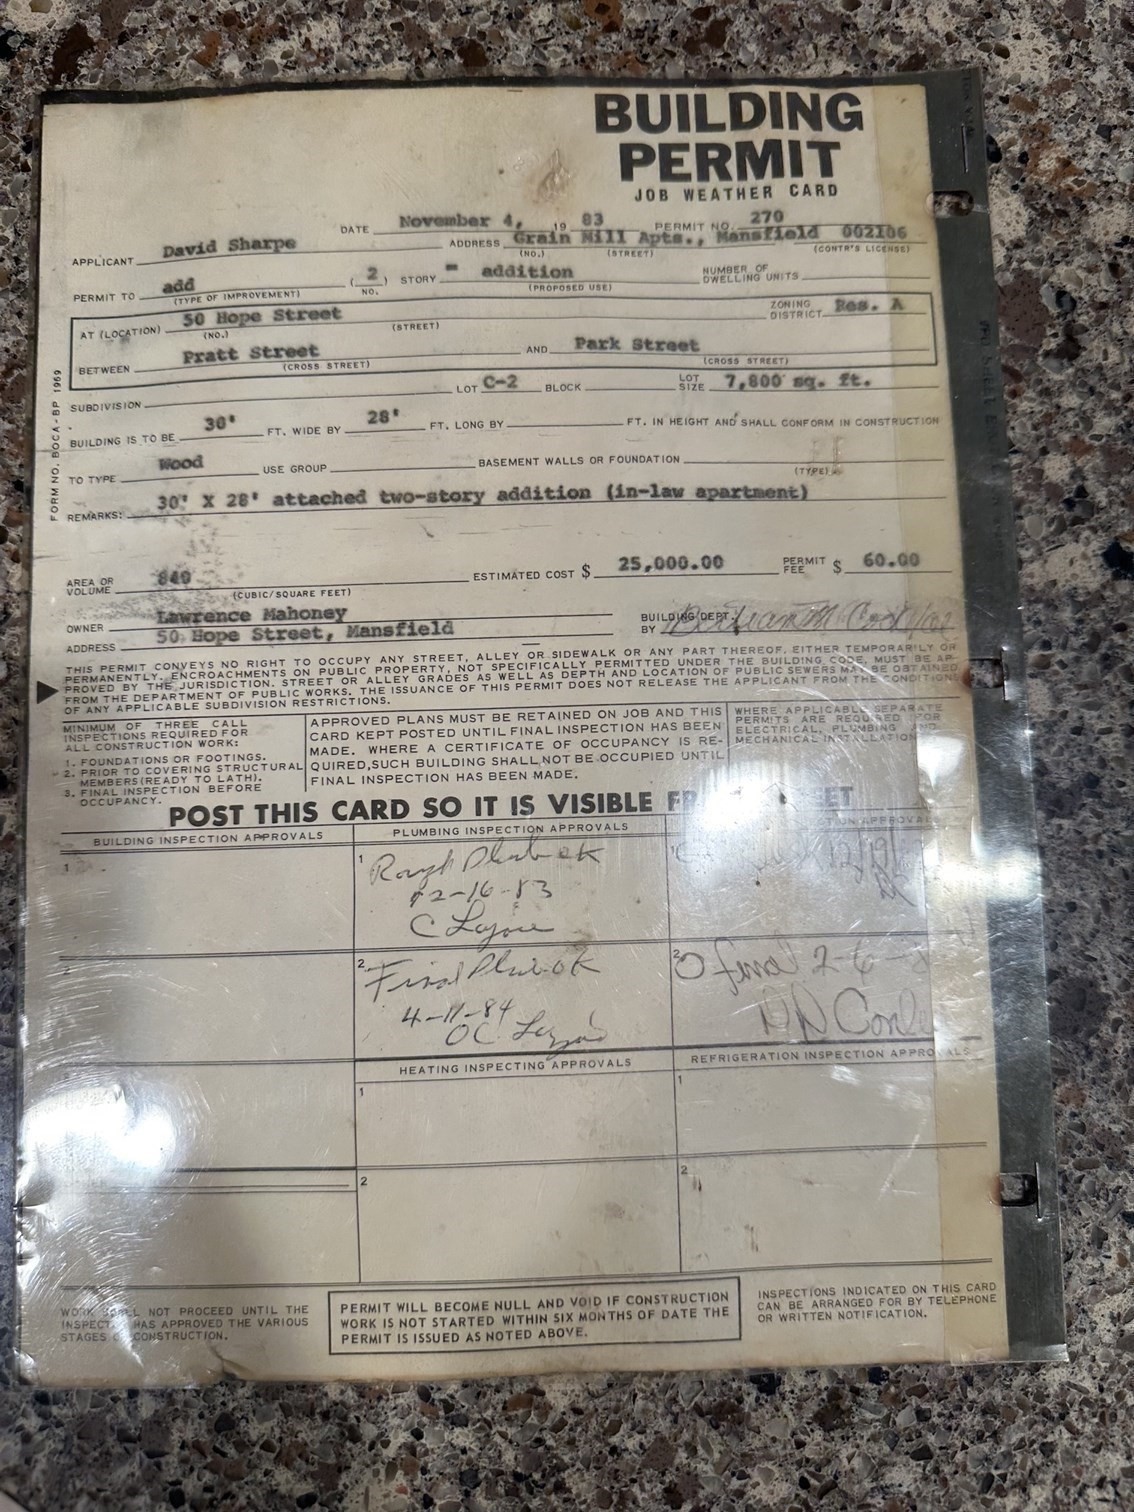 BUILDING
PERMIT
JOB WEATHER CARD
DATE November 4, 19 83 PERMIT NO. 270
APPLICANT David Sharpe ADDRESS Grain Mill Apts., Mansfield 002106
(NO.) (STREET) (CONTR'S LICENSE)
PERMIT TO add ( 2 ) STORY - addition NUMBER OF DWELLING UNITS
(TYPE OF IMPROVEMENT) NO. (PROPOSED USE)
AT (LOCATION) 50 Hope Street ZONING DISTRICT Res. A
(NO.) (STREET)
BETWEEN Pratt Street AND Park Street
(CROSS STREET) (CROSS STREET)
SUBDIVISION LOT C-2 BLOCK LOT SIZE 7,800 sq. ft.
BUILDING IS TO BE 30' FT. WIDE BY 28' FT. LONG BY FT. IN HEIGHT AND SHALL CONFORM IN CONSTRUCTION
TO TYPE Wood USE GROUP BASEMENT WALLS OR FOUNDATION
(TYPE)
REMARKS: 30' X 28' attached two-story addition (in-law apartment)
FORM NO. BOCA-BP 1969
AREA OR VOLUME 840 ESTIMATED COST $ 25,000.00 PERMIT FEE $ 60.00
(CUBIC/SQUARE FEET)
OWNER Lawrence Mahoney BUILDING DEPT.
ADDRESS 50 Hope Street, Mansfield BY
THIS PERMIT CONVEYS NO RIGHT TO OCCUPY ANY STREET, ALLEY OR SIDEWALK OR ANY PART THEREOF, EITHER TEMPORARILY OR
PERMANENTLY. ENCROACHMENTS ON PUBLIC PROPERTY, NOT SPECIFICALLY PERMITTED UNDER THE BUILDING CODE, MUST BE AP-
PROVED BY THE JURISDICTION. STREET OR ALLEY GRADES AS WELL AS DEPTH AND LOCATION OF PUBLIC SEWERS MAY BE OBTAINED
FROM THE DEPARTMENT OF PUBLIC WORKS. THE ISSUANCE OF THIS PERMIT DOES NOT RELEASE THE APPLICANT FROM THE CONDITIONS
OF ANY APPLICABLE SUBDIVISION RESTRICTIONS.
MINIMUM OF THREE CALL
INSPECTIONS REQUIRED FOR
ALL CONSTRUCTION WORK:
1. FOUNDATIONS OR FOOTINGS.
2. PRIOR TO COVERING STRUCTURAL
MEMBERS (READY TO LATH).
3. FINAL INSPECTION BEFORE
OCCUPANCY.
APPROVED PLANS MUST BE RETAINED ON JOB AND THIS
CARD KEPT POSTED UNTIL FINAL INSPECTION HAS BEEN
MADE. WHERE A CERTIFICATE OF OCCUPANCY IS RE-
QUIRED, SUCH BUILDING SHALL NOT BE OCCUPIED UNTIL
FINAL INSPECTION HAS BEEN MADE.
WHERE APPLICABLE SEPARATE
PERMITS ARE REQUIRED FOR
ELECTRICAL, PLUMBING AND
MECHANICAL INSTALLATIONS
POST THIS CARD SO IT IS VISIBLE FROM STREET
BUILDING INSPECTION APPROVALS
1
2
PLUMBING INSPECTION APPROVALS
1 Rough Plumb ok
12-16-83
2 Final Plumb OK
4-11-84
INSPECTION APPROVALS
1
2 final 2-6-
HEATING INSPECTING APPROVALS
1
2
REFRIGERATION INSPECTION APPROVALS
1
2
WORK SHALL NOT PROCEED UNTIL THE
INSPECTOR HAS APPROVED THE VARIOUS
STAGES OF CONSTRUCTION.
PERMIT WILL BECOME NULL AND VOID IF CONSTRUCTION
WORK IS NOT STARTED WITHIN SIX MONTHS OF DATE THE
PERMIT IS ISSUED AS NOTED ABOVE.
INSPECTIONS INDICATED ON THIS CARD
CAN BE ARRANGED FOR BY TELEPHONE
OR WRITTEN NOTIFICATION.